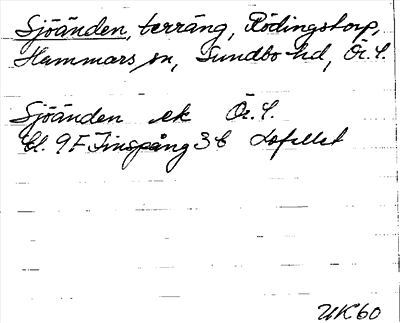 Sjöänden, terräng, Rödingstorp,
Hammars sn, Sundbo hd, Ör. l.
Sjöänden ek Ör. l.
bl. 9F Finspång 3b Lofallet
UK60